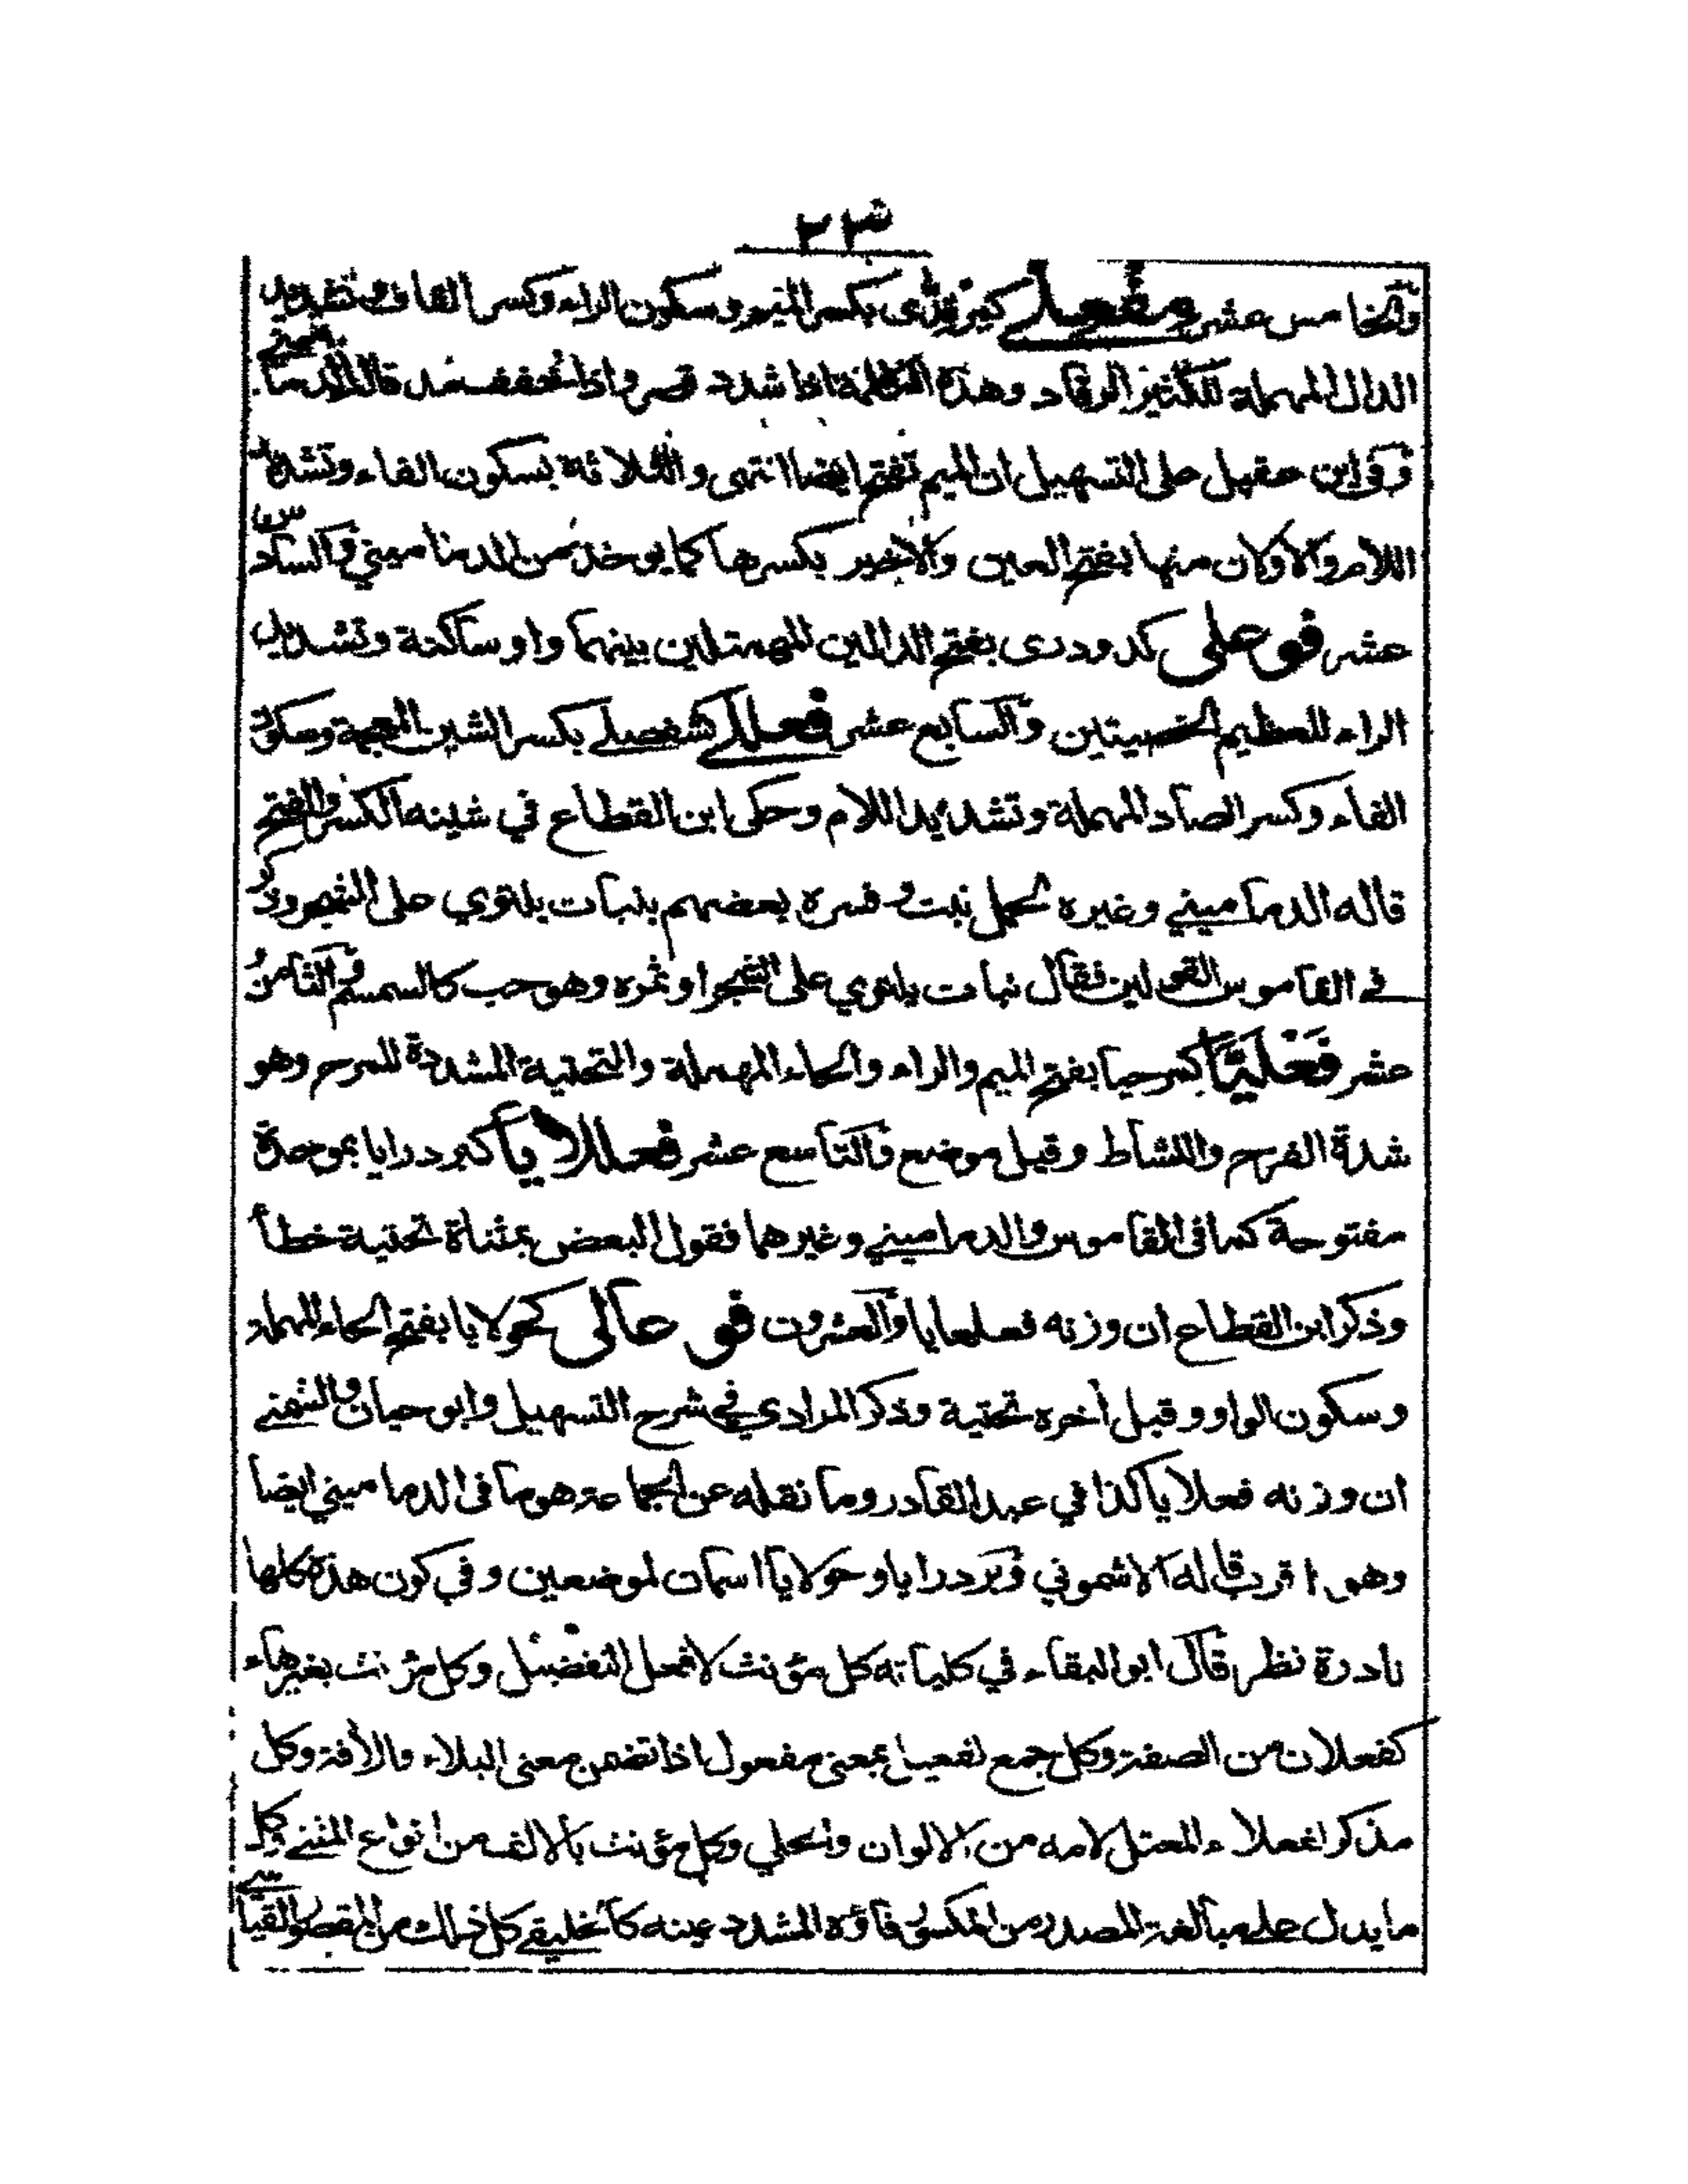 ٢٢
والخامس عشر مفعلى كمرقدى بكسر الميم وسكون الراء وكسر القاف وتشديد
الدال المهملة للكثير الرقاد وهذه اذا شدد قصر واذا خفف مد قاله الدما
مينى
وفى ابن عقيل على التسهيل ان الميم تفتح ايضا انتهى والثلاثة بسكون الفاء وتشديد
اللام والاولان منها بفتح العين والاخير بكسرها كما يوخذ من الدماميني والساد
س
عشر فوعلى كدودرى بفتح الدالين المهمتلين بينهما واو ساكنة وتشديد
الراء للعظيم الخصيتين والسابع عشر فعللى كشفصلى بكسر الشين المعجمة وسكون
الفاء وكسر الصاد المهملة وتشديد اللام وحكى ابن القطاع في شينه الكسر والفتح
قاله الدماميني وغيره لحمل نبت وفسره بعضهم بنبات يلتوي على الشجر وذكر
في القاموس القولين فقال نبات يلتوي على الشجر او ثمره وهو حب كالسمسم والثامن
عشر فَعَلَيَّا كمرحيا بفتح الميم والراء والحاء المهملة والتحتية المشددة للمرح وهو
شدة الفرح والنشاط وقيل موضع والتاسع عشر فعللايا كبردرايا بموحدة
مفتوحة كما فى القاموس والدماميني وغيرهما فقول البعض بمثناة تحتية خطأ
وذكر ابن القطاع ان وزنه فعلعايا والعشرون فوعالى كحولايا بفتح الحاء المهملة
وسكون الواو وقبل أخره تحتية وذكر المرادي في شرح التسهيل وابو حيان والشمنى
ان وزنه فعلايا كذا في عبد القادر وما نقله عن الجماعة هو ما فى الدماميني ايضا
وهو اقرب قاله الاشموني وبردرايا وحولايا اسمان لموضعين وفي كون هذه كلها
نادرة نظر قال ابو البقاء في كلياته كل مؤنث لافعل التفضيل وكل مؤنث بغير هاء
كفعلان من الصفة وكل جمع لفعيل بمعنى مفعول اذا تضمن معنى البلاء والأفة وكل
مذكر افعلاء المعتل لامه من الالوان والحلي وكل مؤنث بالالف من انواع المشي وكل
ما يدل على مبالغة المصدر من المكسور فاؤه المشدد عينه كالخليفى كل ذلك من المقصور القيا
سي